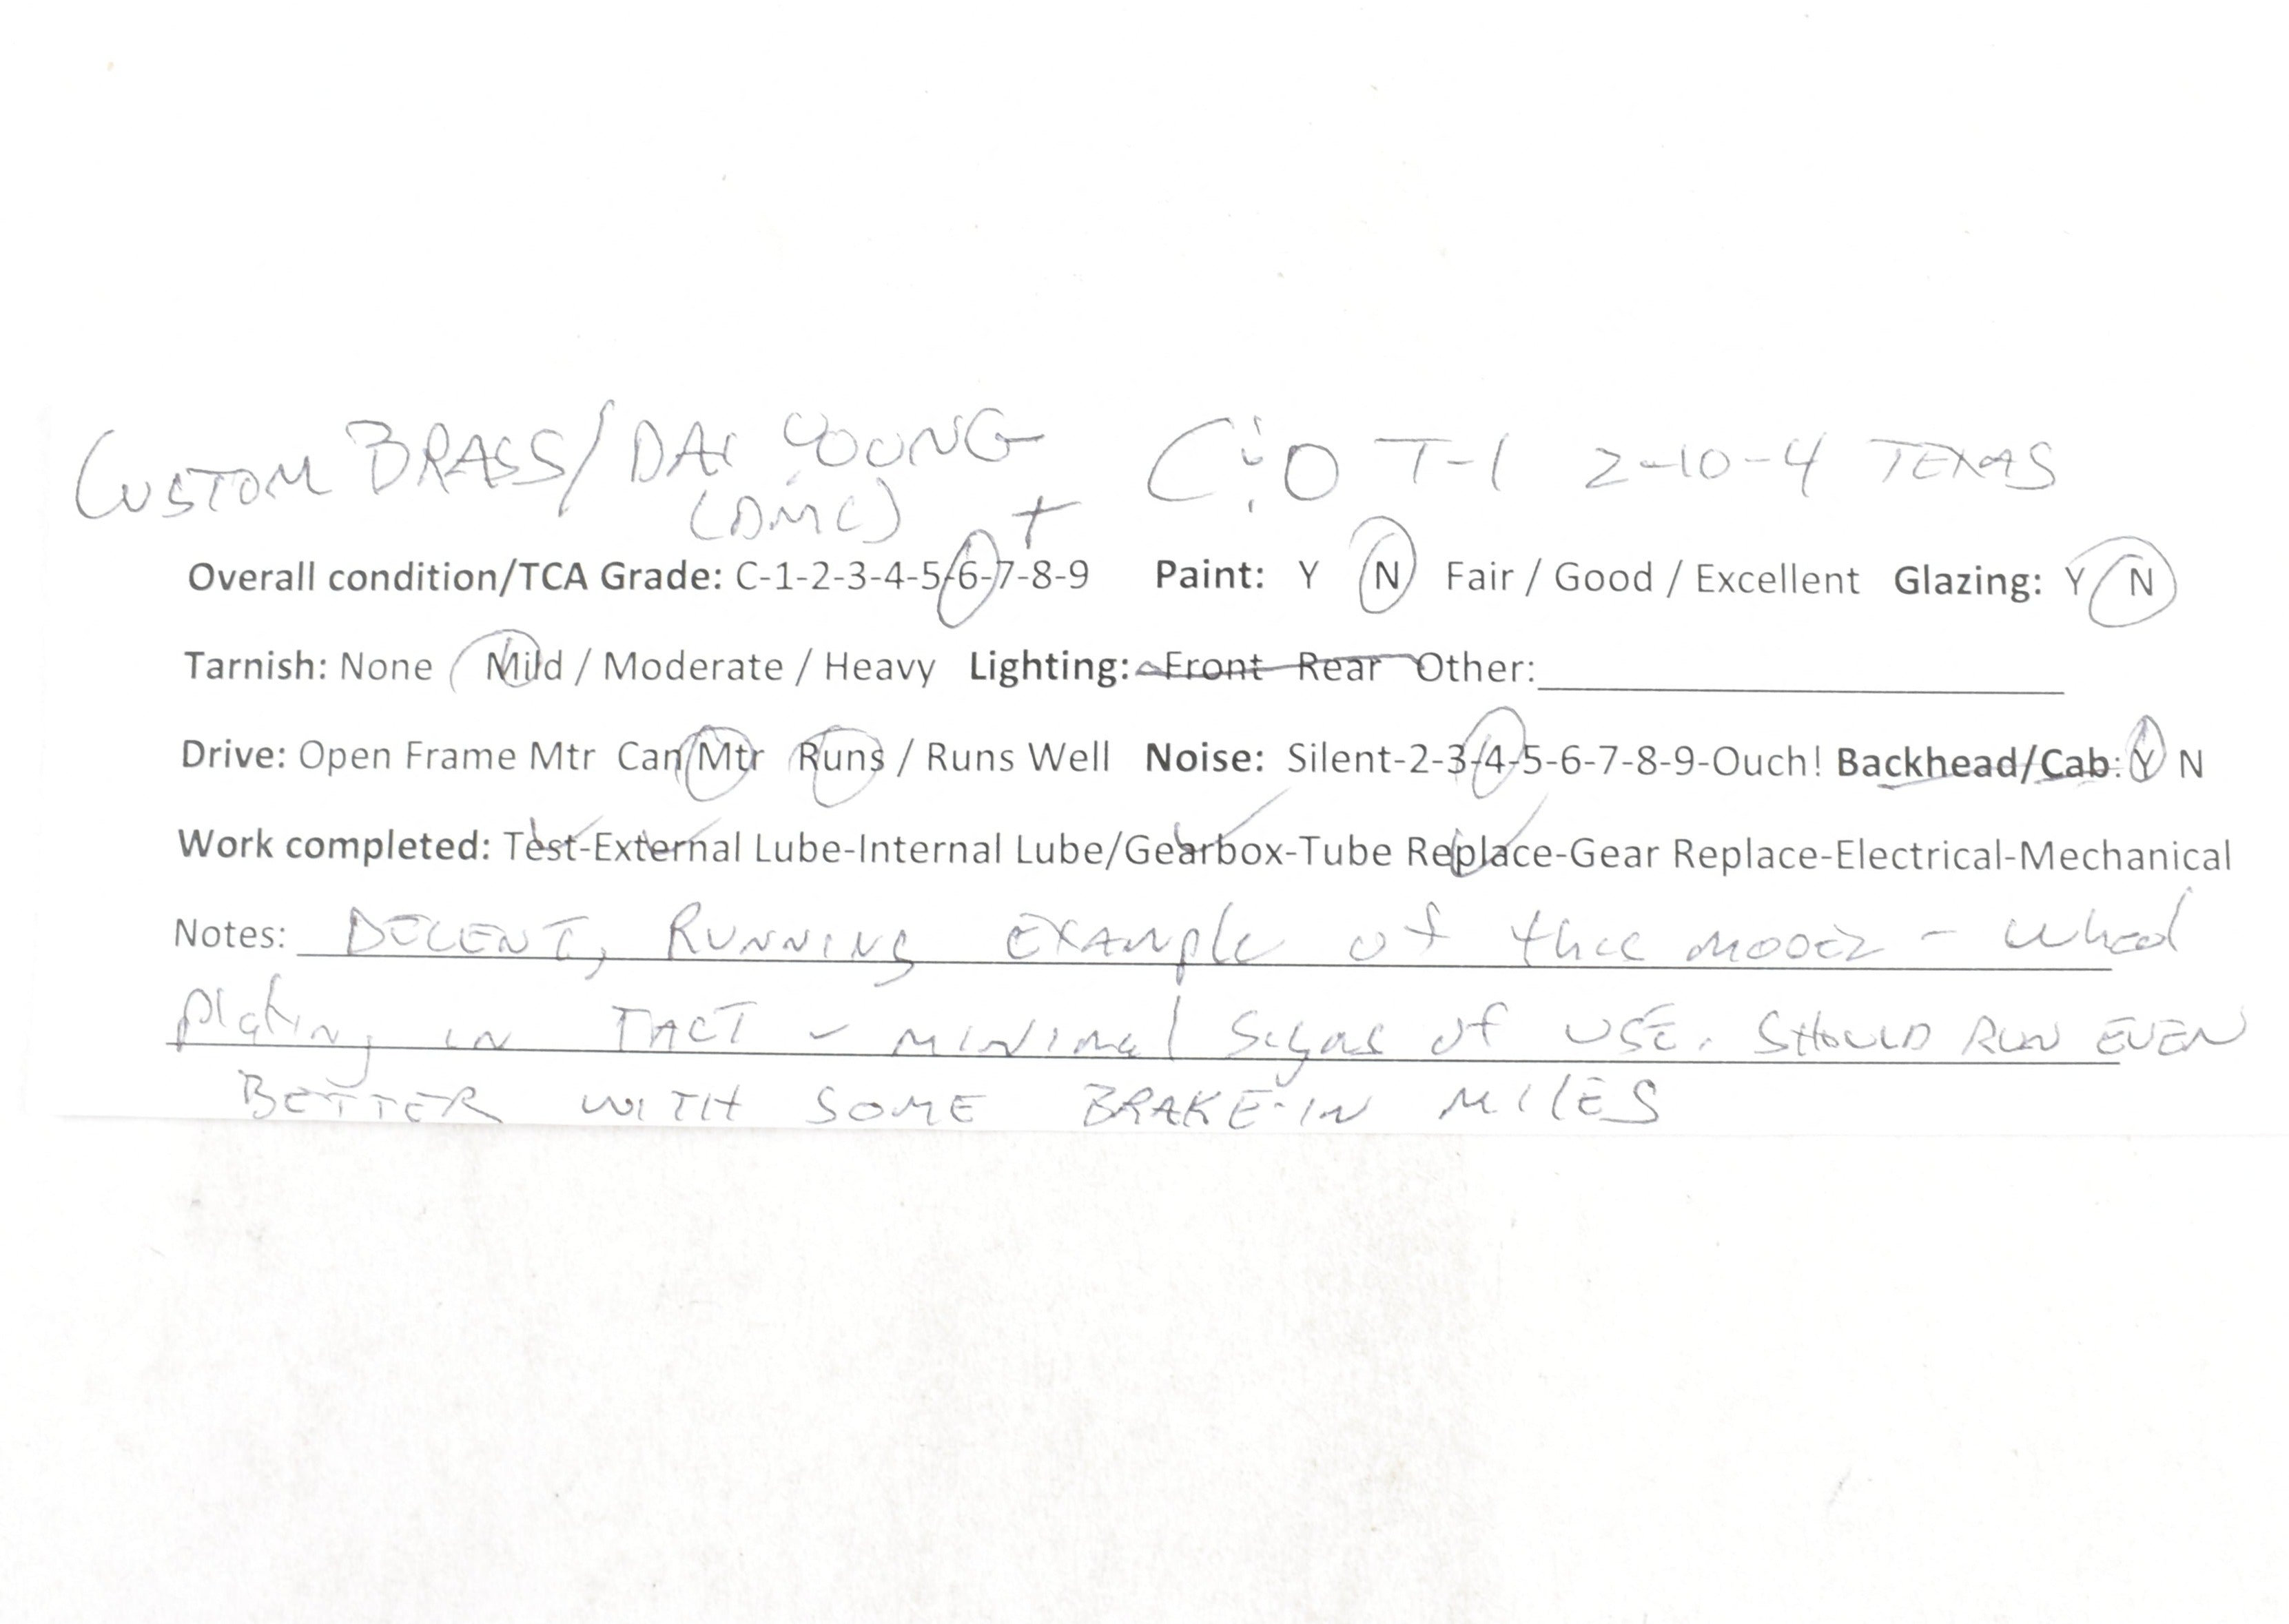 CUSTOM BRASS/DAI YOUNG C&O T-1 2-10-4 TEXAS
(DMC) +
Overall condition/TCA Grade: C-1-2-3-4-5-6-7-8-9 Paint: Y N Fair / Good / Excellent Glazing: Y N
Tarnish: None / Mild / Moderate / Heavy Lighting: Front Rear Other:
Drive: Open Frame Mtr Can Mtr Runs / Runs Well Noise: Silent-2-3-4-5-6-7-8-9-Ouch! Backhead/Cab: Y N
Work completed: Test-External Lube-Internal Lube/Gearbox-Tube Replace-Gear Replace-Electrical-Mechanical
Notes: DECENT, RUNNING EXAMPLE of this model - wheel
plating IN TACT - minimal signs of USE. SHOULD RUN EVEN
BETTER WITH SOME BRAKE-IN MILES